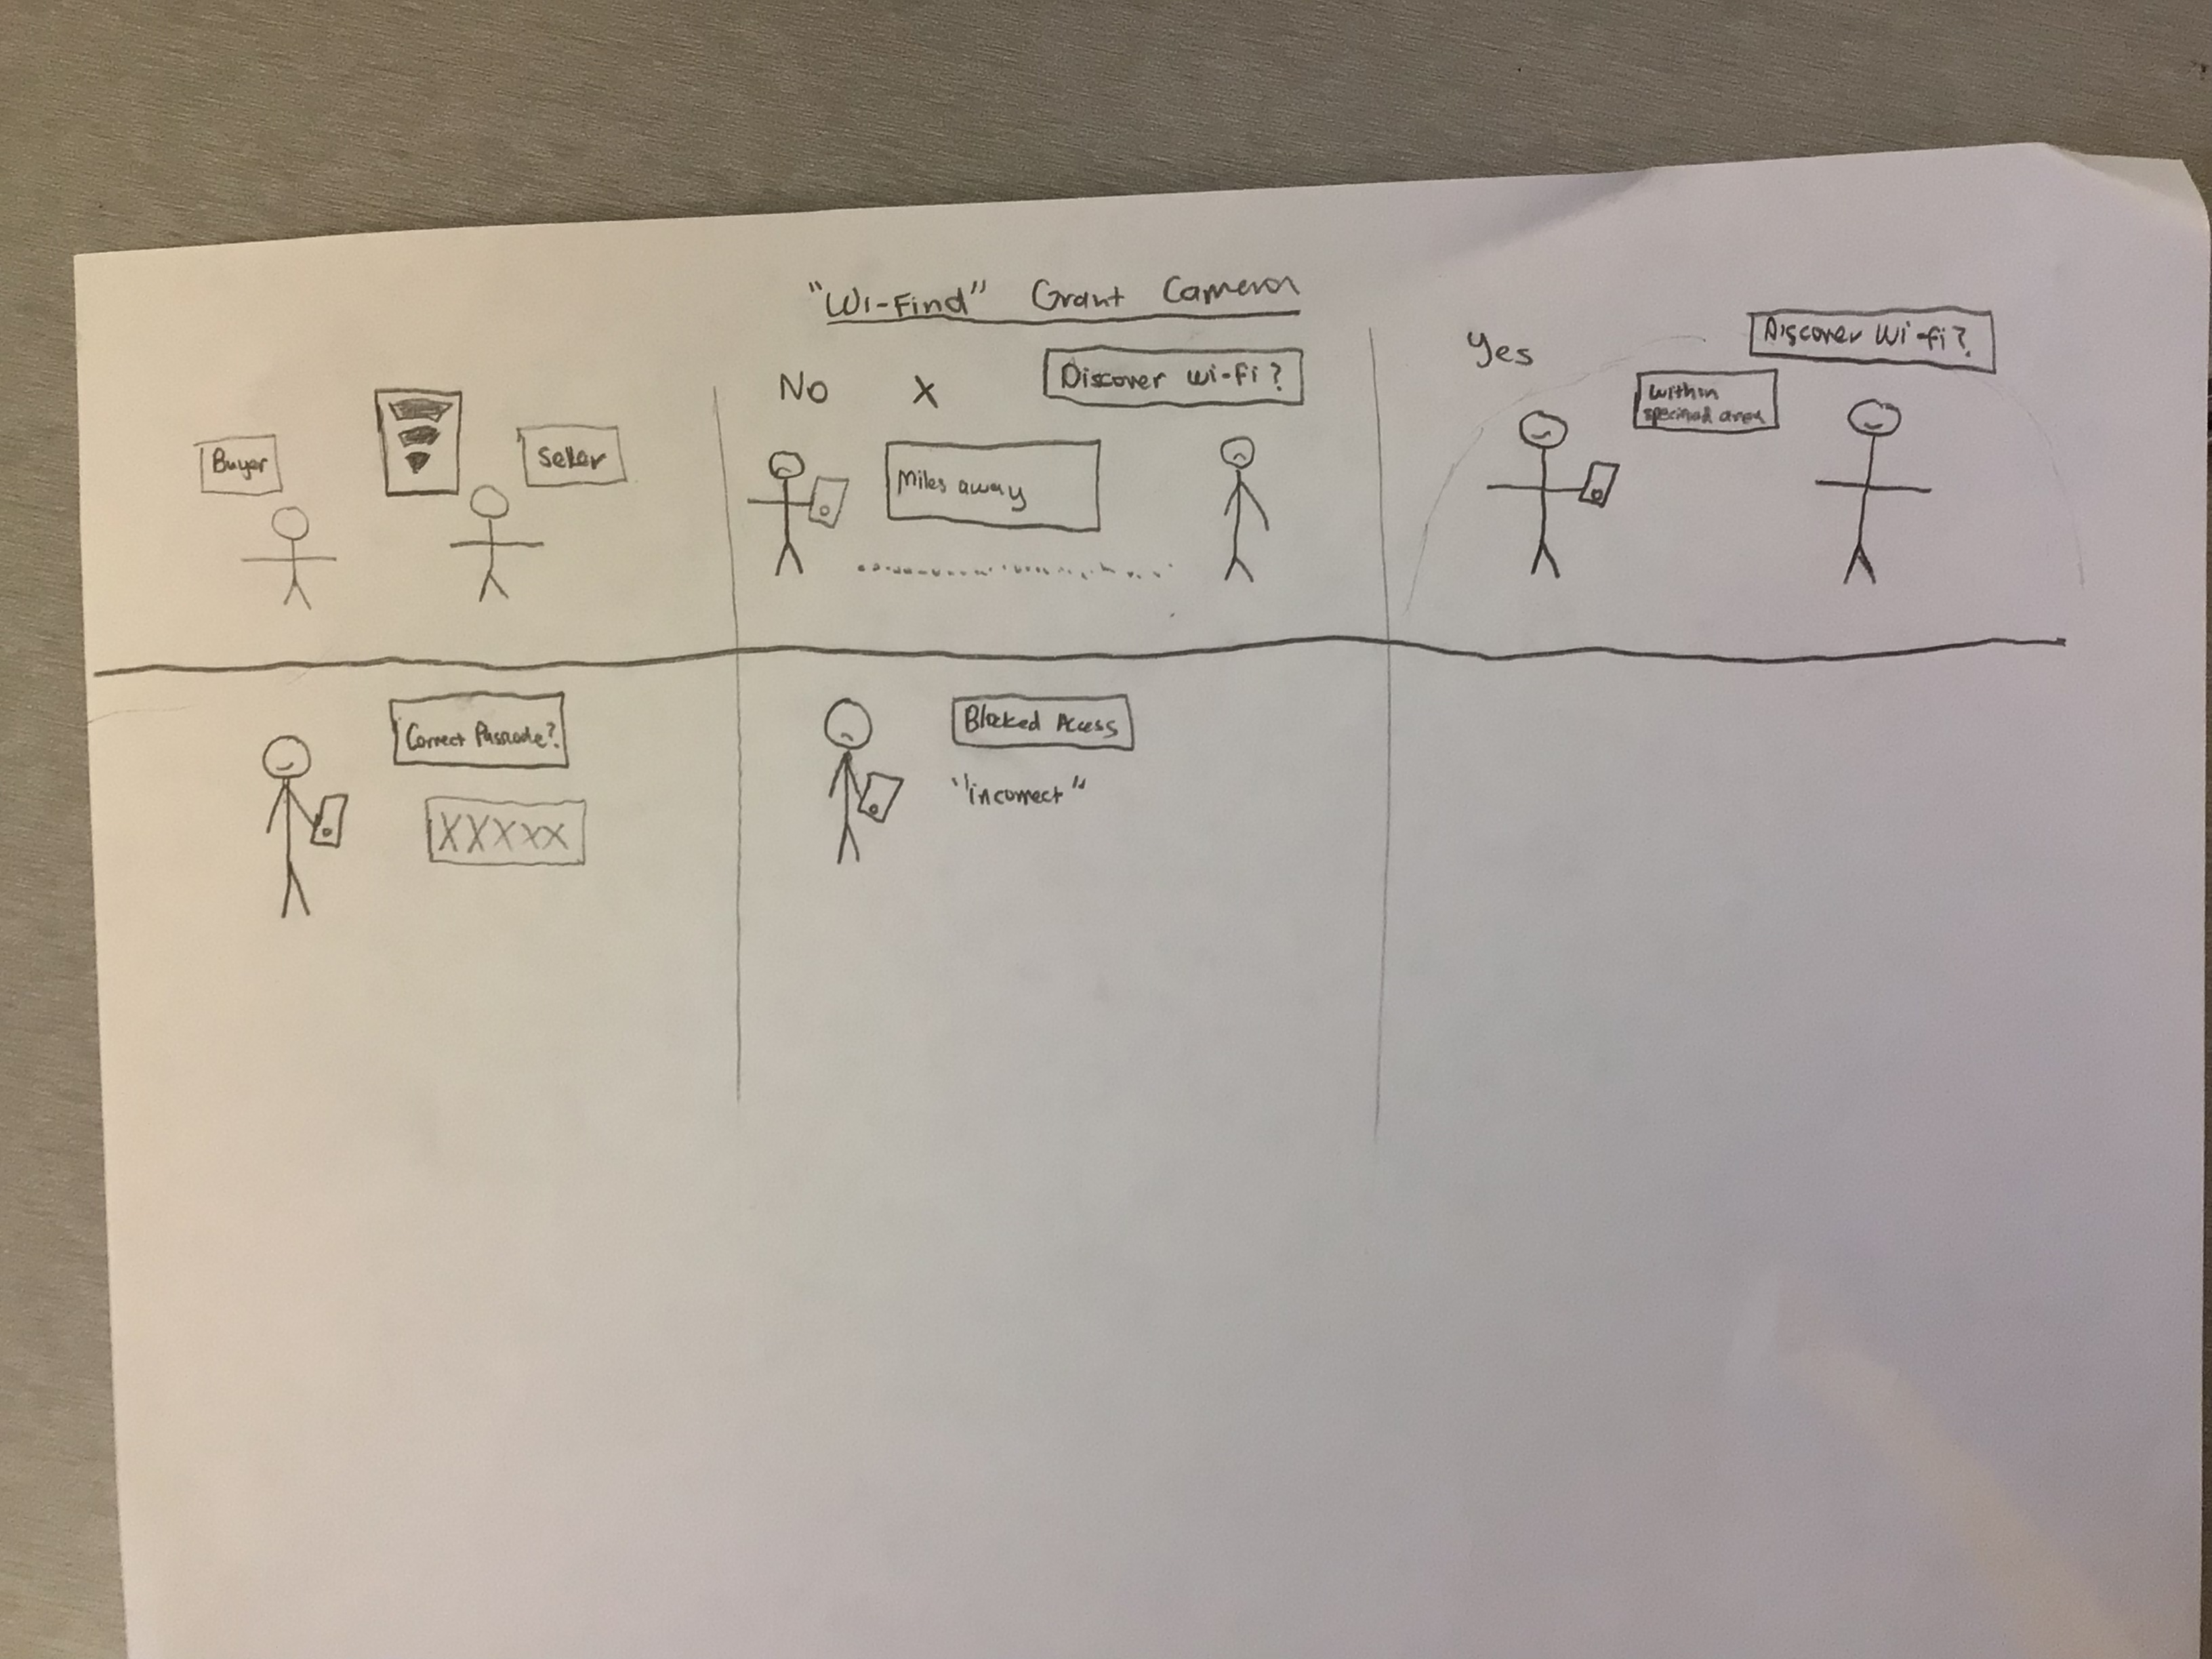 "Wi-Find" Grant Cameron
Buyer
Seller
No X
Discover Wi-Fi?
Miles away
Yes
Discover Wi-fi?
within
specified area
Correct Passcode?
XXXXX
Blocked Access
"incorrect"